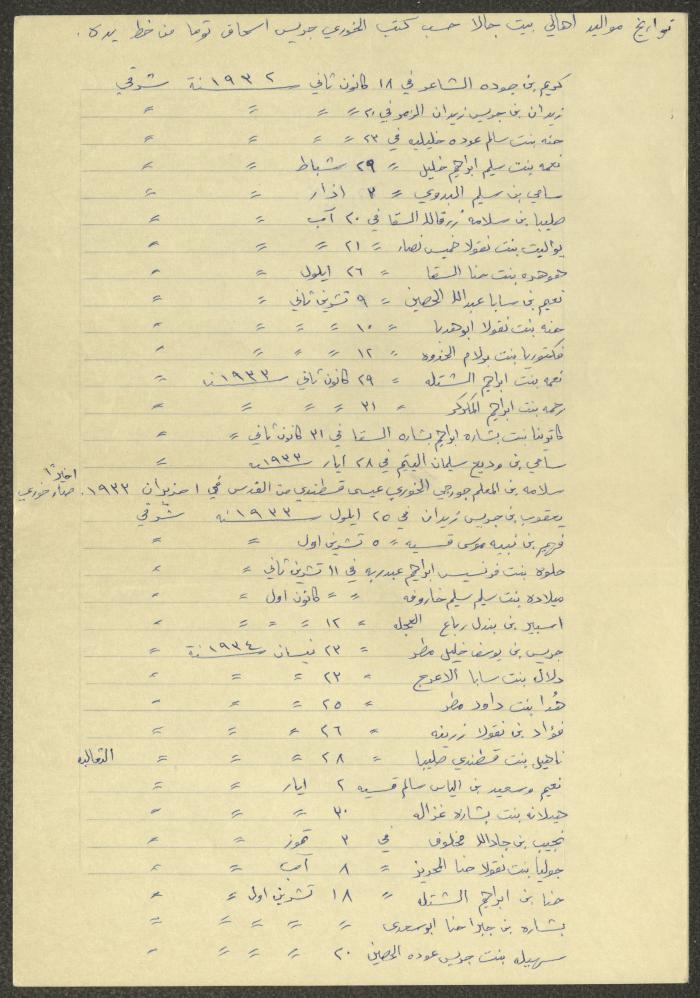 تواريخ مواليد اهالي بيت جالا حسب كتب الخوري جريس اسحاق توما من خط يده.
كريم بن جوده الشاعر في ١٨ كانون ثاني سنة ١٩٣٢ شرقي
زيدان بن جريس زيدان في ٢١ = = = =
حنه بنت سالم عوده خليليه في ٢٣ = = = =
نعمه بنت سليم ابراهيم خليل = ٢٩ شباط = =
سامي بن سليم البدوي = ٣ اذار = =
صليبا بن سلامه رزق الله السقا في ٢٠ آب = =
يواليت بنت نقولا خميس نصار = ٢١ = = =
بنت حنا السقا = ٢٦ ايلول = =
نعيم بن سابا عبدالله الحصين = ٩ تشرين ثاني = =
حنه بنت نقولا ابوهديا = ١٠ = = = =
فكتوريا بنت بولص = ١٢ = = = =
نعمه بنت ابراهيم الشتله = ٢٩ كانون ثاني سنة ١٩٣٣ =
رحمه بنت ابراهيم الكركر = ٣١ = = = =
كاترينا بنت بشاره ابراهيم بشاره السقا في ٣١ كانون ثاني = =
سامي بن وديع سلمان اليتيم في ٢٨ ايار سنة ١٩٣٣ =
سلامه بن المعلم جورجي الخوري عيسى قسطندي من القدس في ١ حزيران ١٩٣٣. صار خوري اخيرًا
يعقوب بن جريس زيدان في ٢٥ ايلول سنة ١٩٣٣ شرقي
فهيم بن نبيه موسى قسيسه = ٥ تشرين اول = =
حلوه بنت فرنسيس ابراهيم عبدربه في ١١ تشرين ثاني = =
ميلاده بنت سليم سليم خاروفه = = كانون اول = =
اسبير بن بندلي رباع العجله = ١٢ = = = =
جريس بن يوسف خليل مطر = ٢٣ نيسان سنة ١٩٣٤ =
دلال بنت سابا الاعرج = ٢٣ = = =
هُدا بنت داود مطر = ٢٥ = = =
فؤاد بن نقولا زرينه = ٢٦ = = =
ناهيل بنت قسطندي صليبا = ٢٨ = = =
نعيم وسعيد بن الياس سالم قسيسه ٢ ايار = =
هيلانه بنت بشاره غزاله ٣٠ = = =
نجيب بن جادالله مخلوف في ٣ تموز = =
جوليا بنت نقولا حنا = ٨ آب = =
حنا بن ابراهيم الشتله = ١٨ تشرين اول = =
بشاره بن جابر حنا ابوسعدى = = = = =
سهيله بنت جريس عوده الحصين ٢٠ = = = =